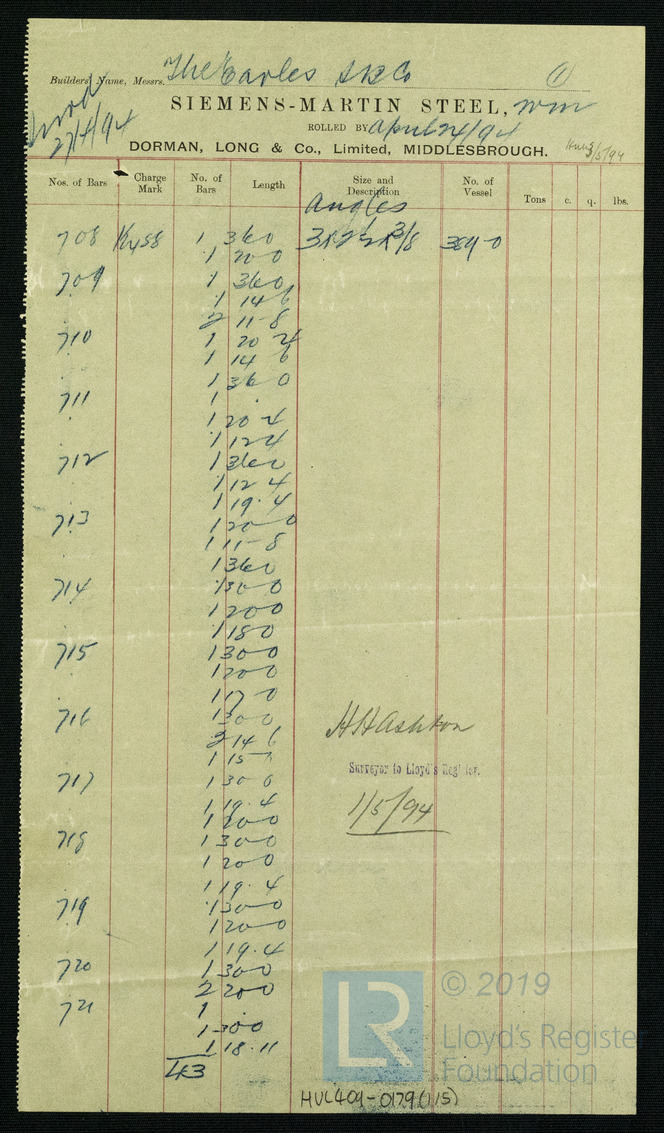 Builders' Name, Messrs. The Earles S&E Co (1)
SIEMENS-MARTIN STEEL,
27/4/94
ROLLED BY April 24/94
DORMAN, LONG & Co., Limited, MIDDLESBROUGH.
3/5/94
Nos. of Bars Charge Mark No. of Bars Length Size and Description No. of Vessel Tons c. q. lbs.
Angles
708 1 36 0 3x2½x3/8 3890
1 20 0
709 1 36 0
1 14 6
2 11-8
710 1 20 4
1 14 6
1 36 0
711 1 .
1 20 4
1 12 4
712 1 36 0
1 12 4
1 19.4
713 1 20-0
1 11-8
1 36 0
714 1 30 0
1 20 0
1 18 0
715 1 30 0
1 20 0
1 17 0
716 1 30 0
2 14 6
1 15
717 1 30 0
1 19.4
1 20 0
718 1 30 0
1 20 0
1 19.4
719 1 30 0
1 20 0
1 19.4
720 1 30 0
2 20 0
721 1 .
1 30 0
1 18.11
43
H H Ashton
Surveyor to Lloyd's Register.
1/5/94
LR
© 2019
Lloyd's Register
Foundation
HUL409-0179(1/5)